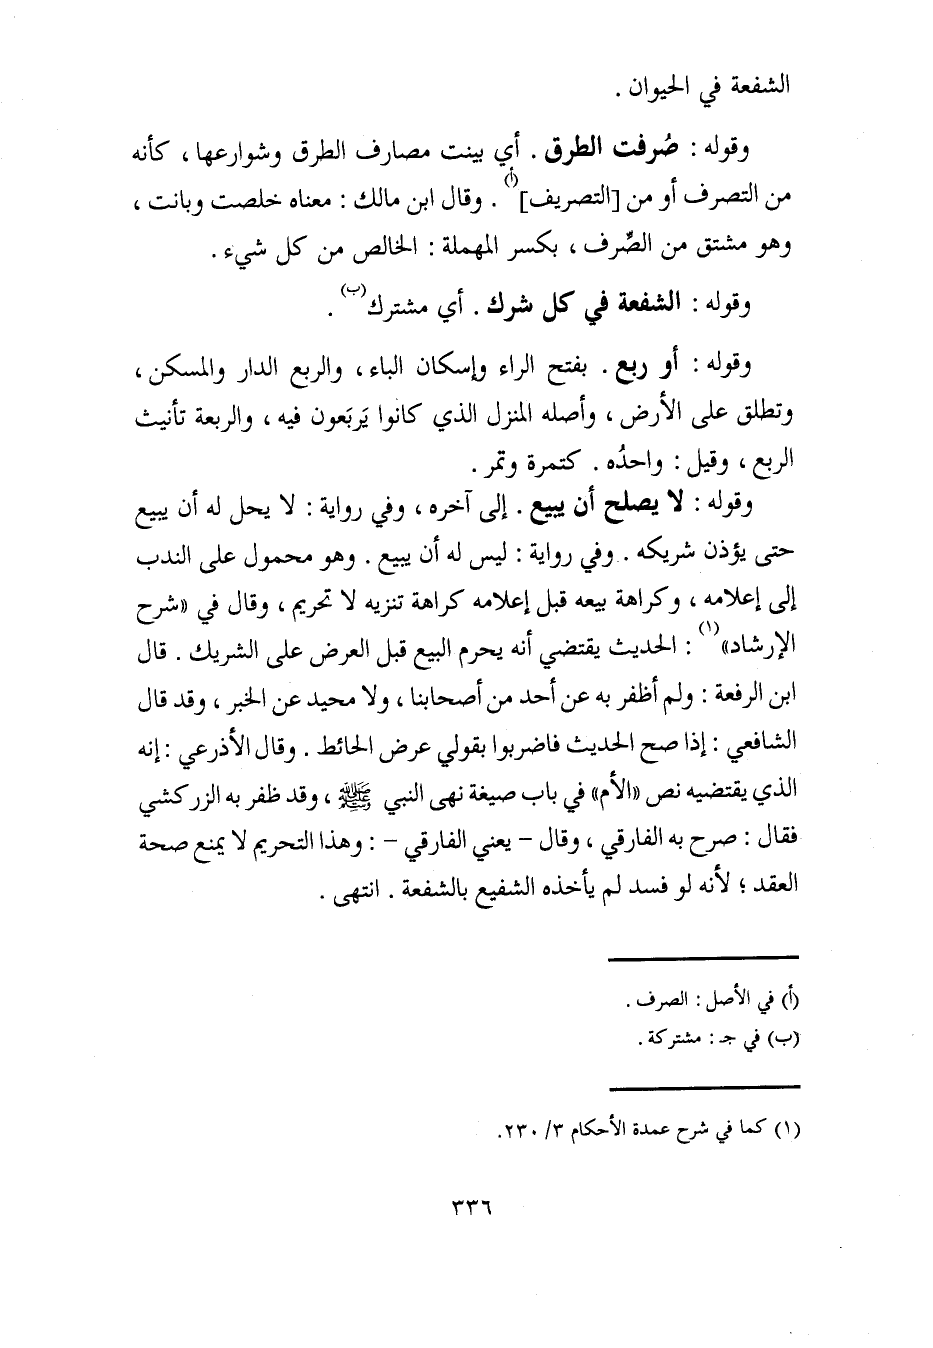 الشفعة في الحيوان .
وقوله : صُرفت الطرق . أي بينت مصارف الطرق وشوارعها ، كأنه
من التصرف أو من [التصريف](أ) . وقال ابن مالك : معناه خلصت وبانت ،
وهو مشتق من الصِّرف ، بكسر المهملة : الخالص من كل شيء .
وقوله : الشفعة في كل شرك . أي مشترك(ب) .
وقوله : أو ربع . بفتح الراء وإسكان الباء ، والربع الدار والمسكن ،
وتطلق على الأرض ، وأصله المنزل الذي كانوا يَربَعون فيه ، والربعة تأنيث
الربع ، وقيل : واحدُه . كتمرة وتمر .
وقوله : لا يصلح أن يبيع . إلى آخره ، وفي رواية : لا يحل له أن يبيع
حتى يؤذن شريكه . وفي رواية : ليس له أن يبيع . وهو محمول على الندب
إلى إعلامه ، وكراهة بيعه قبل إعلامه كراهة تنزيه لا تحريم ، وقال في «شرح
الإرشاد»(١) : الحديث يقتضي أنه يحرم البيع قبل العرض على الشريك . قال
ابن الرفعة : ولم أظفر به عن أحد من أصحابنا ، ولا محيد عن الخبر ، وقد قال
الشافعي : إذا صح الحديث فاضربوا بقولي عرض الحائط . وقال الأذرعي : إنه
الذي يقتضيه نص «الأم» في باب صيغة نهى النبي ﷺ ، وقد ظفر به الزركشي
فقال : صرح به الفارقي ، وقال – يعني الفارقي – : وهذا التحريم لا يمنع صحة
العقد ؛ لأنه لو فسد لم يأخذه الشفيع بالشفعة . انتهى .
(أ) في الأصل : الصرف .
(ب) في جـ : مشتركة .
(١) كما في شرح عمدة الأحكام ٣/ ٢٣٠.
٣٣٦